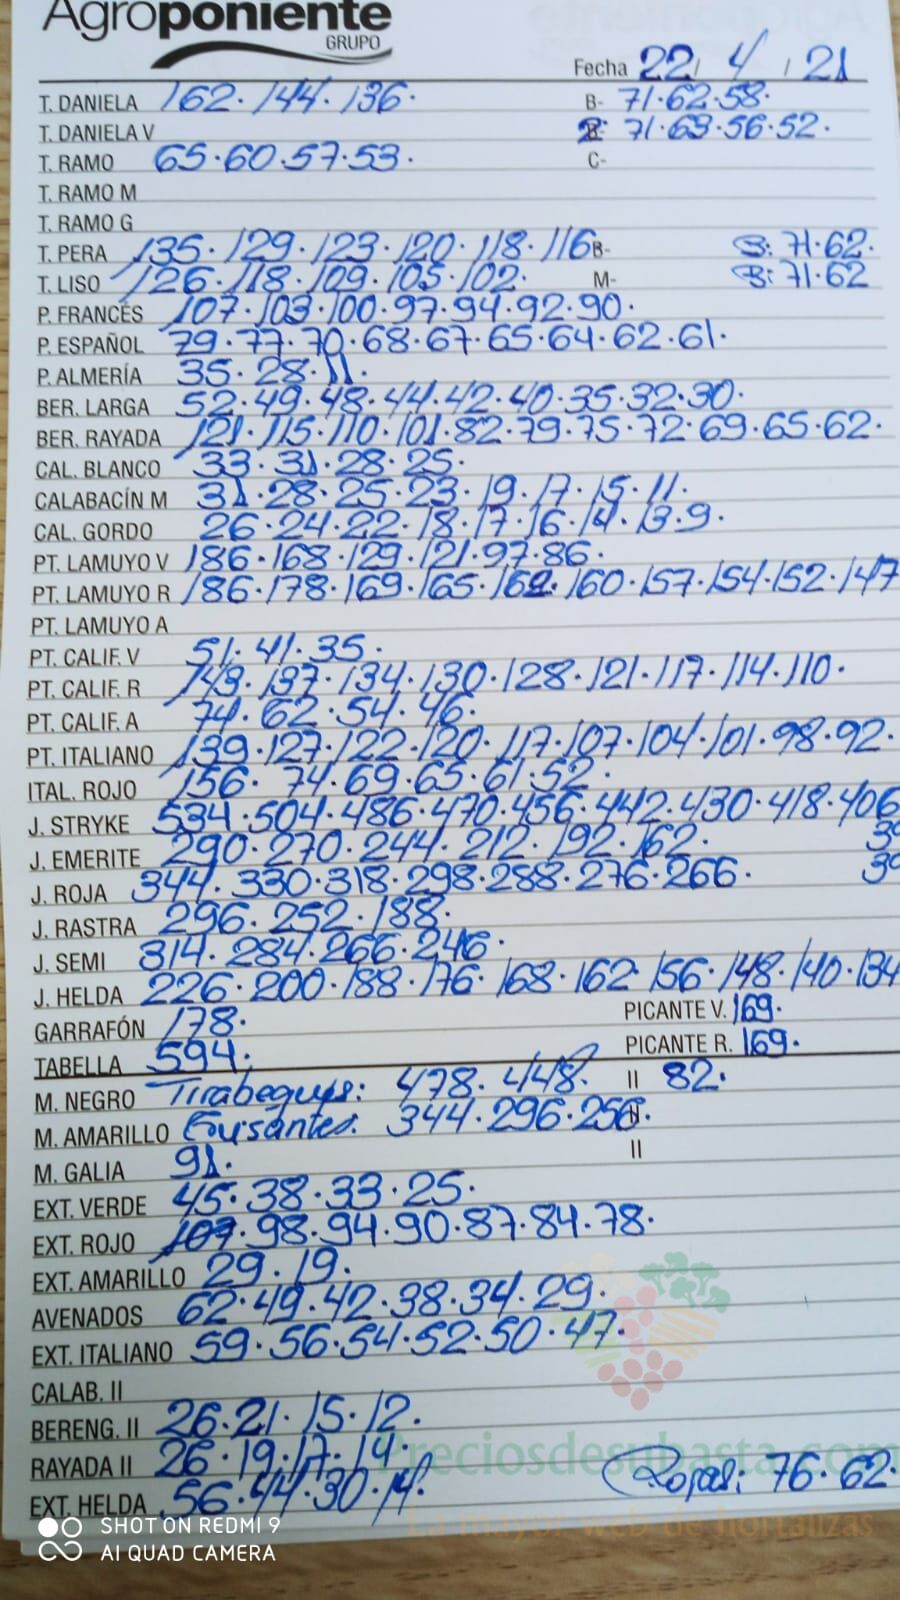 Agroponiente
GRUPO
Fecha 22 / 4 / 21
T. DANIELA 162. 144. 136. B- 71.62.58.
T. DANIELA V 71.63.56.52.
T. RAMO 65.60.57.53. C-
T. RAMO M
T. RAMO G
T. PERA 135. 129. 123. 120. 118. 116 B- B: 71.62.
T. LISO 126. 118. 109. 105. 102. M- B: 71.62
P. FRANCÉS 107. 103. 100. 97. 94. 92. 90.
P. ESPAÑOL 79. 77. 70. 68. 67. 65. 64. 62. 61.
P. ALMERÍA 35. 28. 11.
BER. LARGA 52. 49. 48. 44. 42. 40. 35. 32. 30.
BER. RAYADA 121. 115. 110. 101. 82. 79. 75. 72. 69. 65. 62.
CAL. BLANCO 33. 31. 28. 25.
CALABACÍN M 31. 28. 25. 23. 19. 17. 15. 11.
CAL. GORDO 26. 24. 22. 18. 17. 16. 14. 13. 9.
PT. LAMUYO V 186. 168. 129. 121. 97. 86.
PT. LAMUYO R 186. 178. 169. 165. 162. 160. 157. 154. 152. 147
PT. LAMUYO A
PT. CALIF. V 51. 41. 35.
PT. CALIF. R 143. 137. 134. 130. 128. 121. 117. 114. 110.
PT. CALIF. A 74. 62. 54. 46.
PT. ITALIANO 139. 127. 122. 120. 117. 107. 104. 101. 98. 92.
ITAL. ROJO 156. 74. 69. 65. 61. 52.
J. STRYKE 534. 504. 486. 470. 456. 442. 430. 418. 406
J. EMERITE 290. 270. 244. 212. 192. 162.
J. ROJA 344. 330. 318. 298. 288. 276. 266.
J. RASTRA 296. 252. 188.
J. SEMI 314. 284. 266. 246.
J. HELDA 226. 200. 188. 176. 168. 162 156. 148. 140. 134
GARRAFÓN 178. PICANTE V. 169.
TABELLA 594. PICANTE R. 169.
M. NEGRO Tirabeques: 478. 448. II 82.
M. AMARILLO Guisantes: 344. 296. 256.
M. GALIA 91. II
EXT. VERDE 45. 38. 33. 25.
EXT. ROJO 107. 98. 94. 90. 87. 84. 78.
EXT. AMARILLO 29. 19.
AVENADOS 62. 49. 42. 38. 34. 29.
EXT. ITALIANO 59. 56. 54. 52. 50. 47.
CALAB. II
BERENG. II 26. 21. 15. 12.
RAYADA II 26. 19. 17. 14.
Preciosdesubasta.com
EXT. HELDA 56. 44. 30. 14. Rojas: 76. 62.
La mayor web de hortalizas
SHOT ON REDMI 9
AI QUAD CAMERA